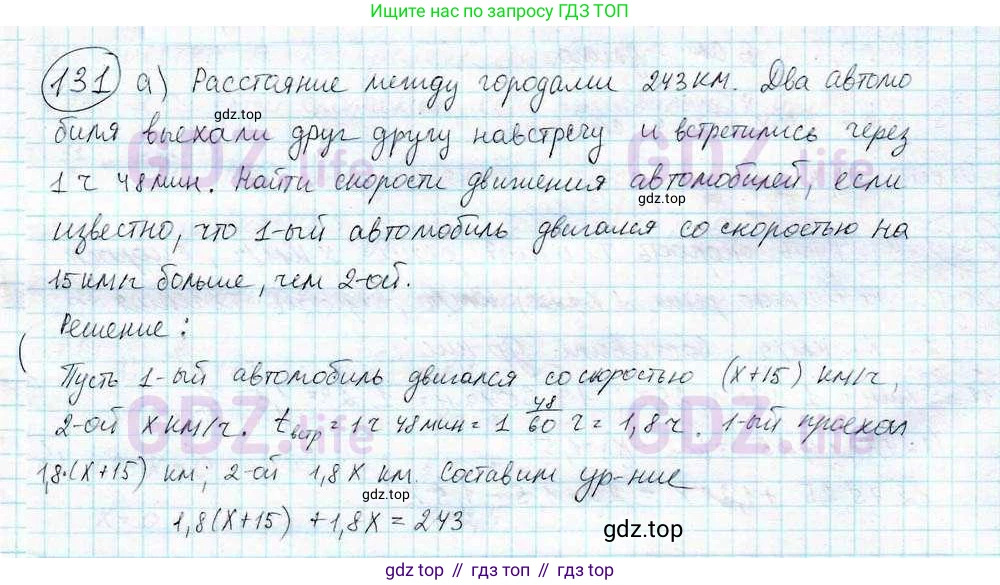 Ищите решение по запросу ГДЗ ТОП
131 а) Расстояние между городами 243 км. Два автомо
gdz.top
биля выехали друг другу навстречу и встретились через
GDZ.life GDZ.life
1 ч 48 мин. Найти скорости движения автомобилей, если
gdz.top
известно, что 1-ый автомобиль двигался со скоростью на
15 км/ч больше, чем 2-ой.
Решение:
Пусть 1-ый автомобиль двигался со скоростью (х+15) км/ч,
GDZ.life GDZ.life
2-ой х км/ч. tвстр = 1 ч 48 мин = 1 48/60 ч = 1,8 ч. 1-ый проехал
1,8·(х+15) км; 2-ой 1,8х км. Составим ур-ние
gdz.top
1,8(х+15) + 1,8х = 243
gdz.top
gdz.top // gdz.top // gdz.top